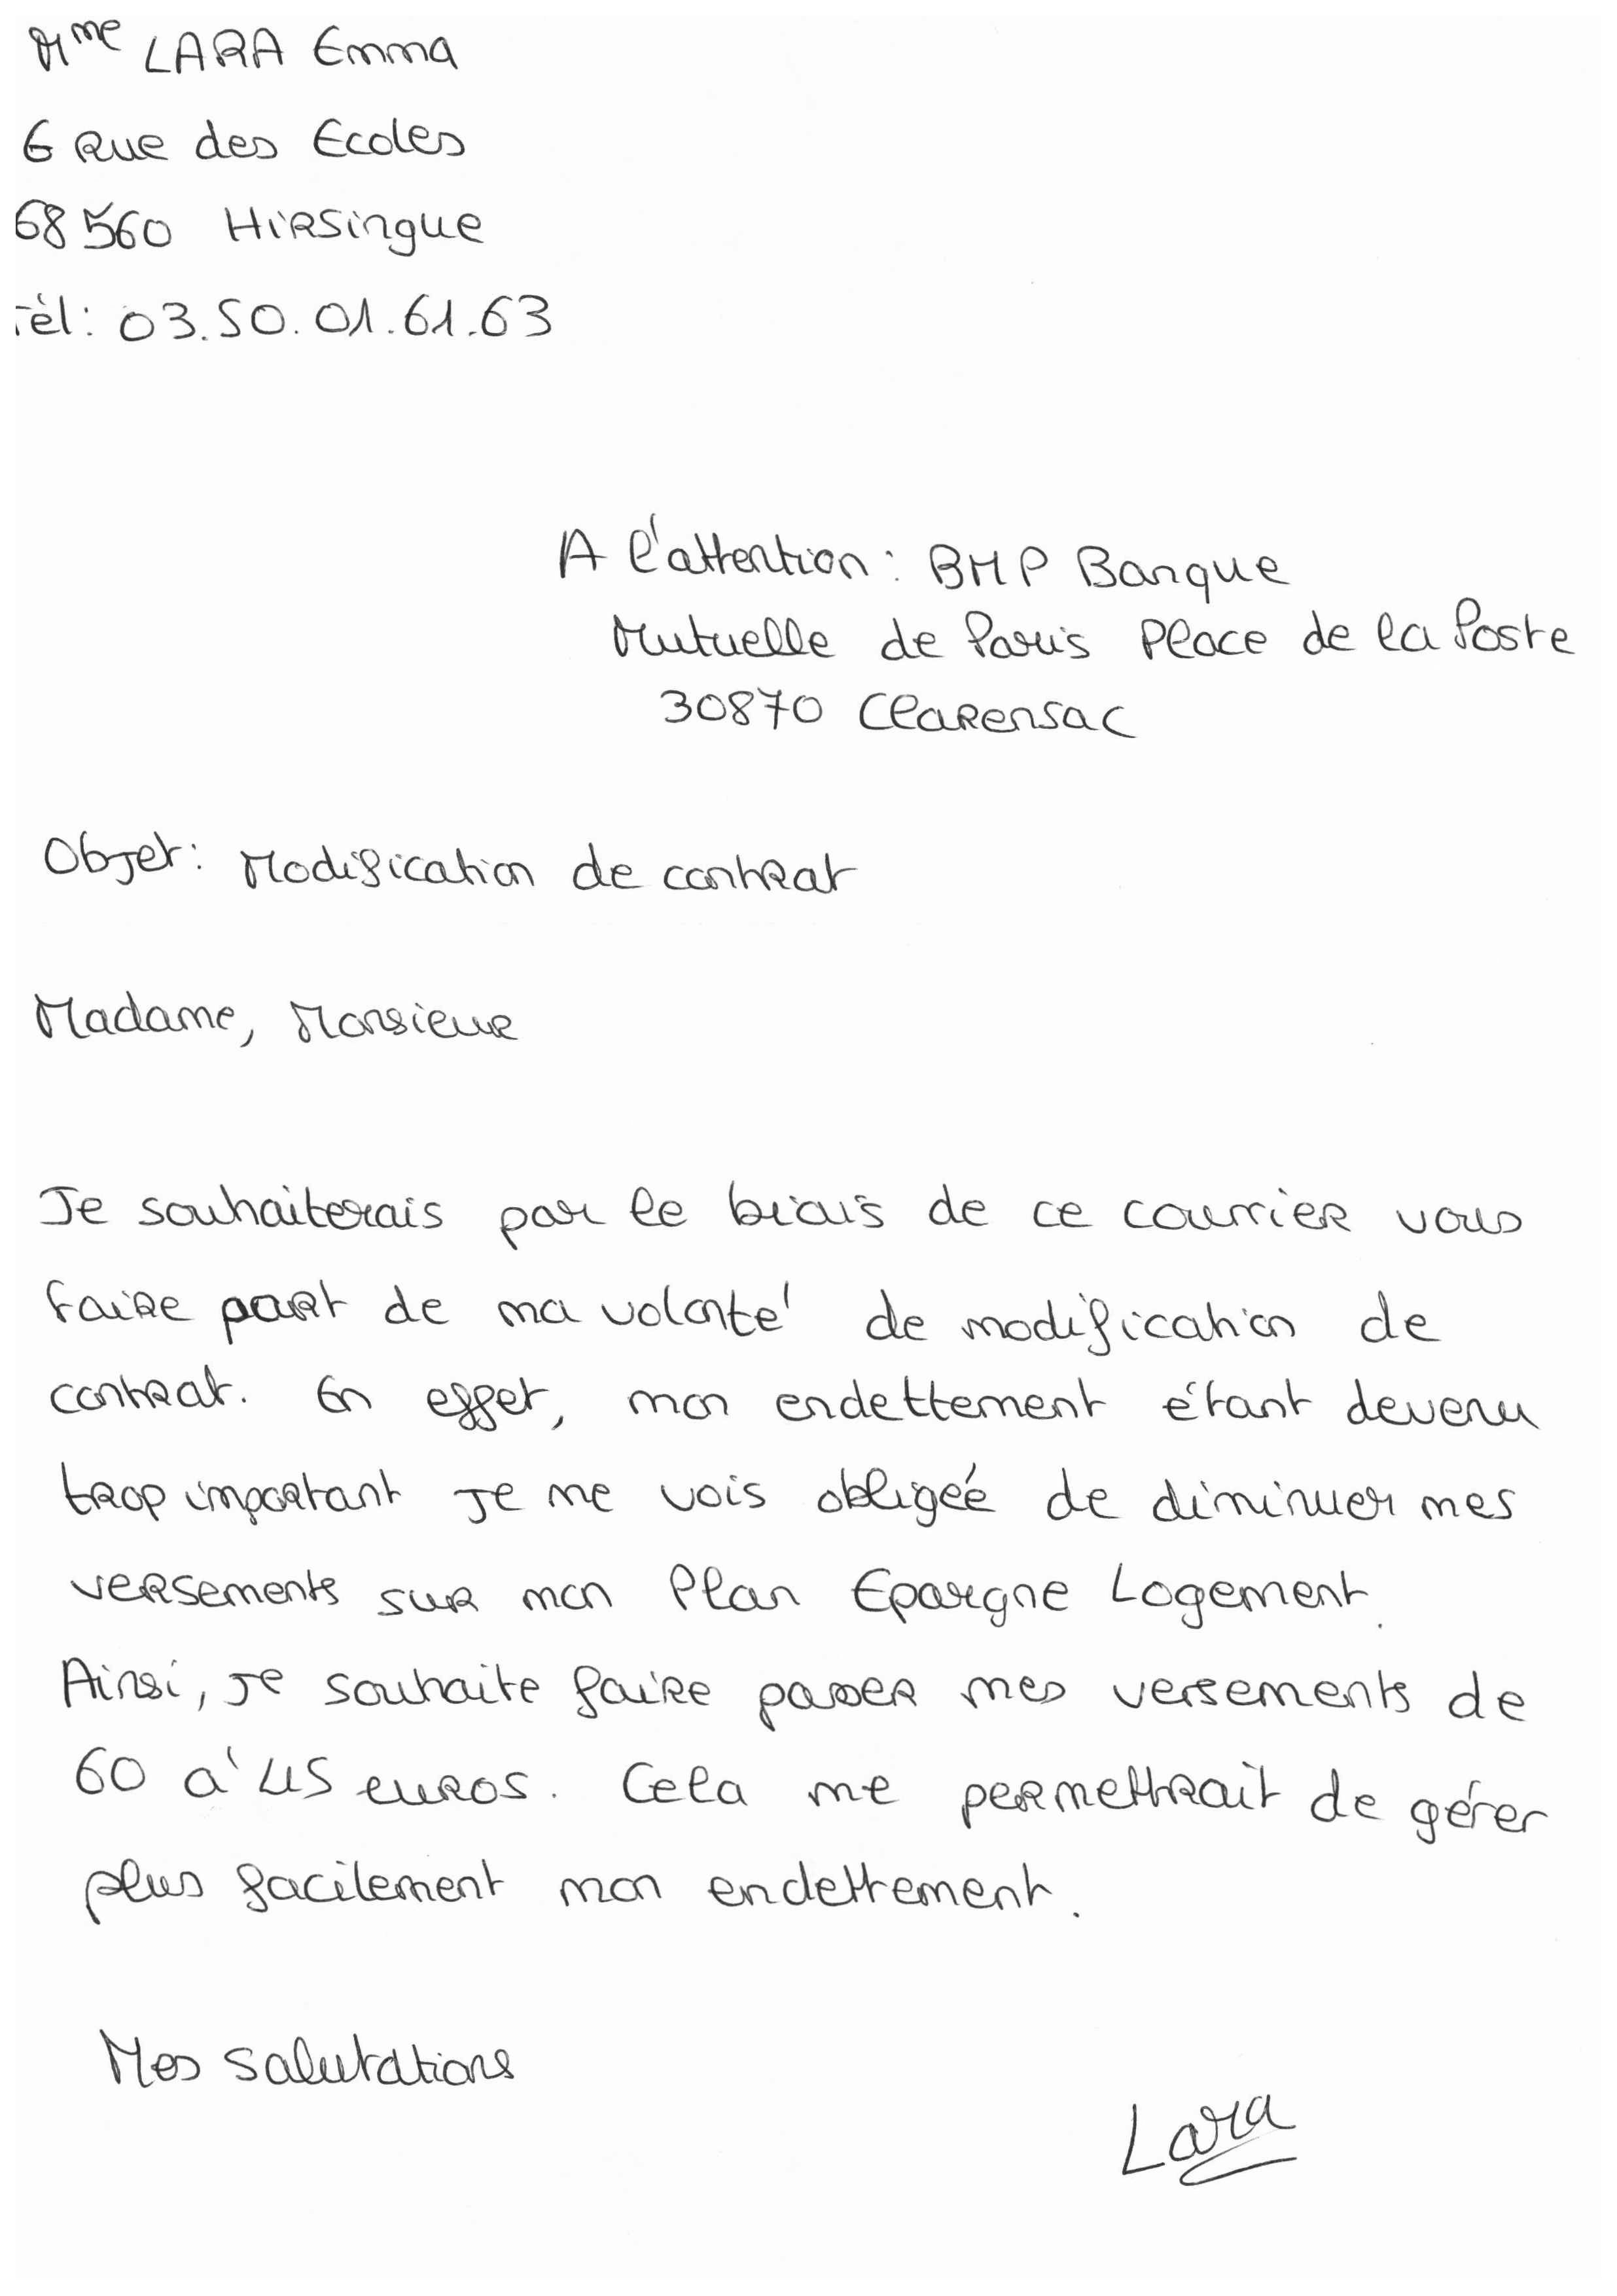 Mme LARA Emma
6 Rue des Ecoles
68560 Hirsingue
Tèl: 03.50.01.61.63
A l'attention: BMP Banque
Mutuelle de Paris Place de la Poste
30870 Clarensac
Objet: Modification de contrat
Madame, Monsieur
Je souhaiterais par le biais de ce courrier vous
faire part de ma volonté de modification de
contrat. En effet, mon endettement étant devenu
trop important je me vois obligéé de diminuer mes
versements sur mon Plan Epargne Logement.
Ainsi, je souhaite faire passer mes versements de
60 à 45 euros. Cela me permettrait de gérer
plus facilement mon endettement.
Mes salutations
Lara